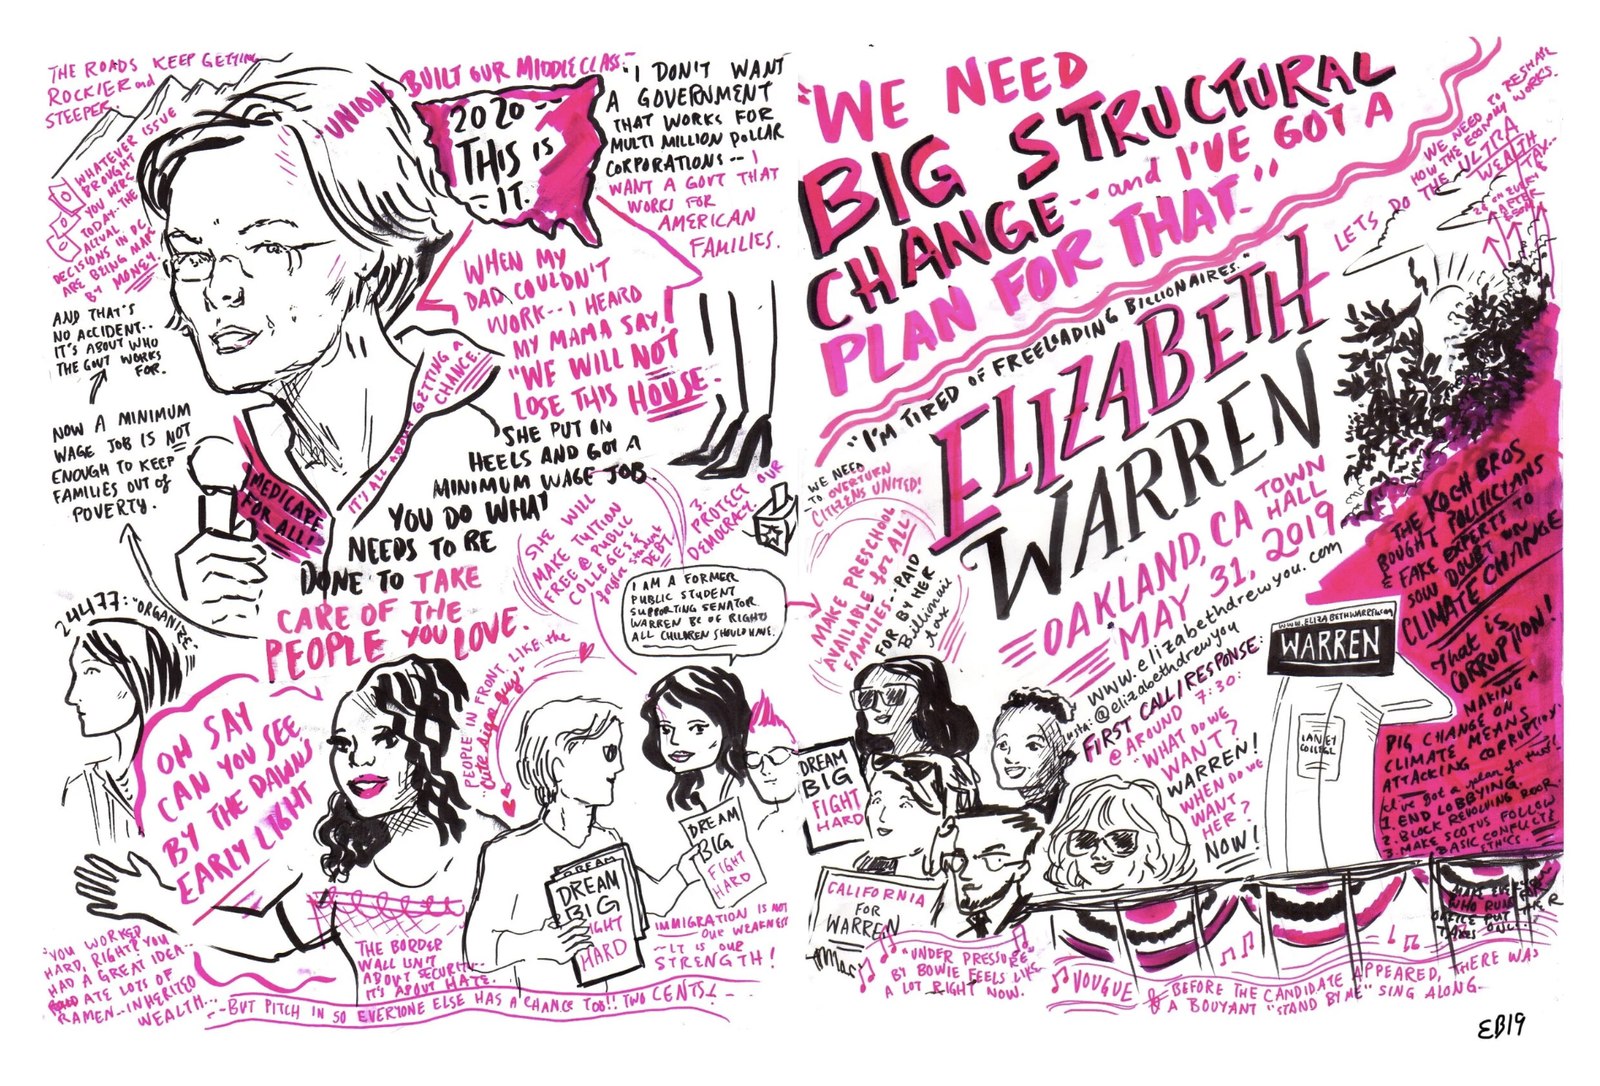 THE ROADS KEEP GETTING
ROCKIER and
STEEPER
WHATEVER ISSUE
BROUGHT
YOU HERE
TODAY--THE
ACTUAL
DECISIONS IN D.C.
ARE BEING MADE
BY MONEY.
AND THAT'S
NO ACCIDENT--
IT'S ABOUT WHO
THE GOVT WORKS
FOR.
NOW A MINIMUM
WAGE JOB IS NOT
ENOUGH TO KEEP
FAMILIES OUT OF
POVERTY.
"UNIONS BUILT OUR MIDDLE CLASS."
2020--
THIS IS
-IT.
"I DON'T WANT
A GOVERNMENT
THAT WORKS FOR
MULTI MILLION DOLLAR
CORPORATIONS-- I
WANT A GOVT THAT
WORKS FOR
AMERICAN
FAMILIES.
WHEN MY
DAD COULDN'T
WORK--I HEARD
MY MAMA SAY,
"WE WILL NOT
LOSE THIS HOUSE.
SHE PUT ON
HEELS AND GOT A
MINIMUM WAGE JOB.
YOU DO WHAT
NEEDS TO BE
DONE TO TAKE
CARE OF THE
PEOPLE YOU LOVE.
IT'S ALL ABOUT GETTING A
CHANCE.
MEDICARE
FOR ALL!
24477: "ORGANIZE"
OH SAY
CAN YOU SEE
BY THE DAWNS
EARLY LIGHT
"YOU WORKED
HARD, RIGHT? YOU
HAD A GREAT IDEA--
ATE LOTS OF
RAMEN--INHERITED
WEALTH...
--BUT PITCH IN SO EVERYONE ELSE HAS A CHANCE TOO!! TWO CENTS!--
THE BORDER
WALL ISN'T
ABOUT SECURITY--
IT'S ABOUT HATE.
PEOPLE IN FRONT, LIKE, the
"Cute sign guy"
SHE WILL
MAKE TUITION
FREE @ PUBLIC
COLLEGES &
forgive student
DEBT.
3. PROTECT OUR
DEMOCRACY.
I AM A FORMER
PUBLIC STUDENT
SUPPORTING SENATOR
WARREN BC OF RIGHTS
ALL CHILDREN SHOULD HAVE.
DREAM
DREAM
BIG
FIGHT
HARD
DREAM
BIG
FIGHT
HARD
IMMIGRATION IS NOT
OUR WEAKNESS
-IT IS OUR
STRENGTH!
"WE NEED
BIG STRUCTURAL
CHANGE--and I'VE GOT A
PLAN FOR THAT."
"I'M TIRED OF FREELOADING BILLIONAIRES."
ELIZABETH
WARREN
OAKLAND, CA TOWN
HALL
MAY 31, 2019
www.elizabethdrewyou.com
insta: @elizabethdrewyou
FIRST CALL/RESPONSE:
@ AROUND 7:30:
"WHAT DO WE
WANT?
WARREN!
WHEN DO WE
WANT
HER?
NOW!
WE NEED
TO OVERTURN
CITIZENS UNITED!
MAKE PRESCHOOL
AVAILABLE for ALL
FAMILIES--PAID
FOR BY HER
Billionaire
tax
LETS DO
THE ULTRA
WEALTH
TAX--
WE NEED TO RESHAPE
HOW THE ECONOMY WORKS.
THE KOCH BROS
BOUGHT POLITICIANS
FAKE EXPERTS TO
SOW DOUBT ON
CLIMATE CHANGE
That is
CORRUPTION!
MAKING A
BIG CHANGE ON
CLIMATE MEANS
ATTACKING CORRUPTION.
(I've got a plan for that!
1. END LOBBYING.
2. BLOCK REVOLVING DOOR
3. MAKE SCOTUS FOLLOW
BASIC CONFLICT
ETHICS.
MAKE EVERYONE
WHO RUNS FOR
OFFICE PUT THEIR
TAXES ONLINE
WWW.ELIZABETHWARREN.com
WARREN
LANEY
COLLEGE
DREAM
BIG
FIGHT
HARD
CALIFORNIA
FOR
WARREN
"UNDER PRESSURE"
BY BOWIE FEELS LIKE
A LOT RIGHT NOW.
VOUGUE & BEFORE THE CANDIDATE APPEARED, THERE WAS
A BOUYANT "STAND BY ME" SING ALONG-
EB19